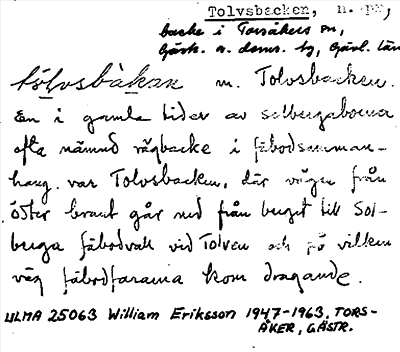 Tolvsbacken, n. pr,
backe i Torsåkers sn,
Gästr. o. doms. hg, Gävl. län
tölvsbàkan m. Tolvsbacken.
En i gamla tider av solbergaborna
ofta nämnd vägbacke i fäbodsamman-
hang var Tolvsbacken, där vägen från
öster brant går ned från berget till Sol-
berga fäbodvall vid Tolven och på vilken
väg fäbodfararna kom dragande.
ULMA 25063 William Eriksson 1947-1963, TORS-
ÅKER, GÄSTR.